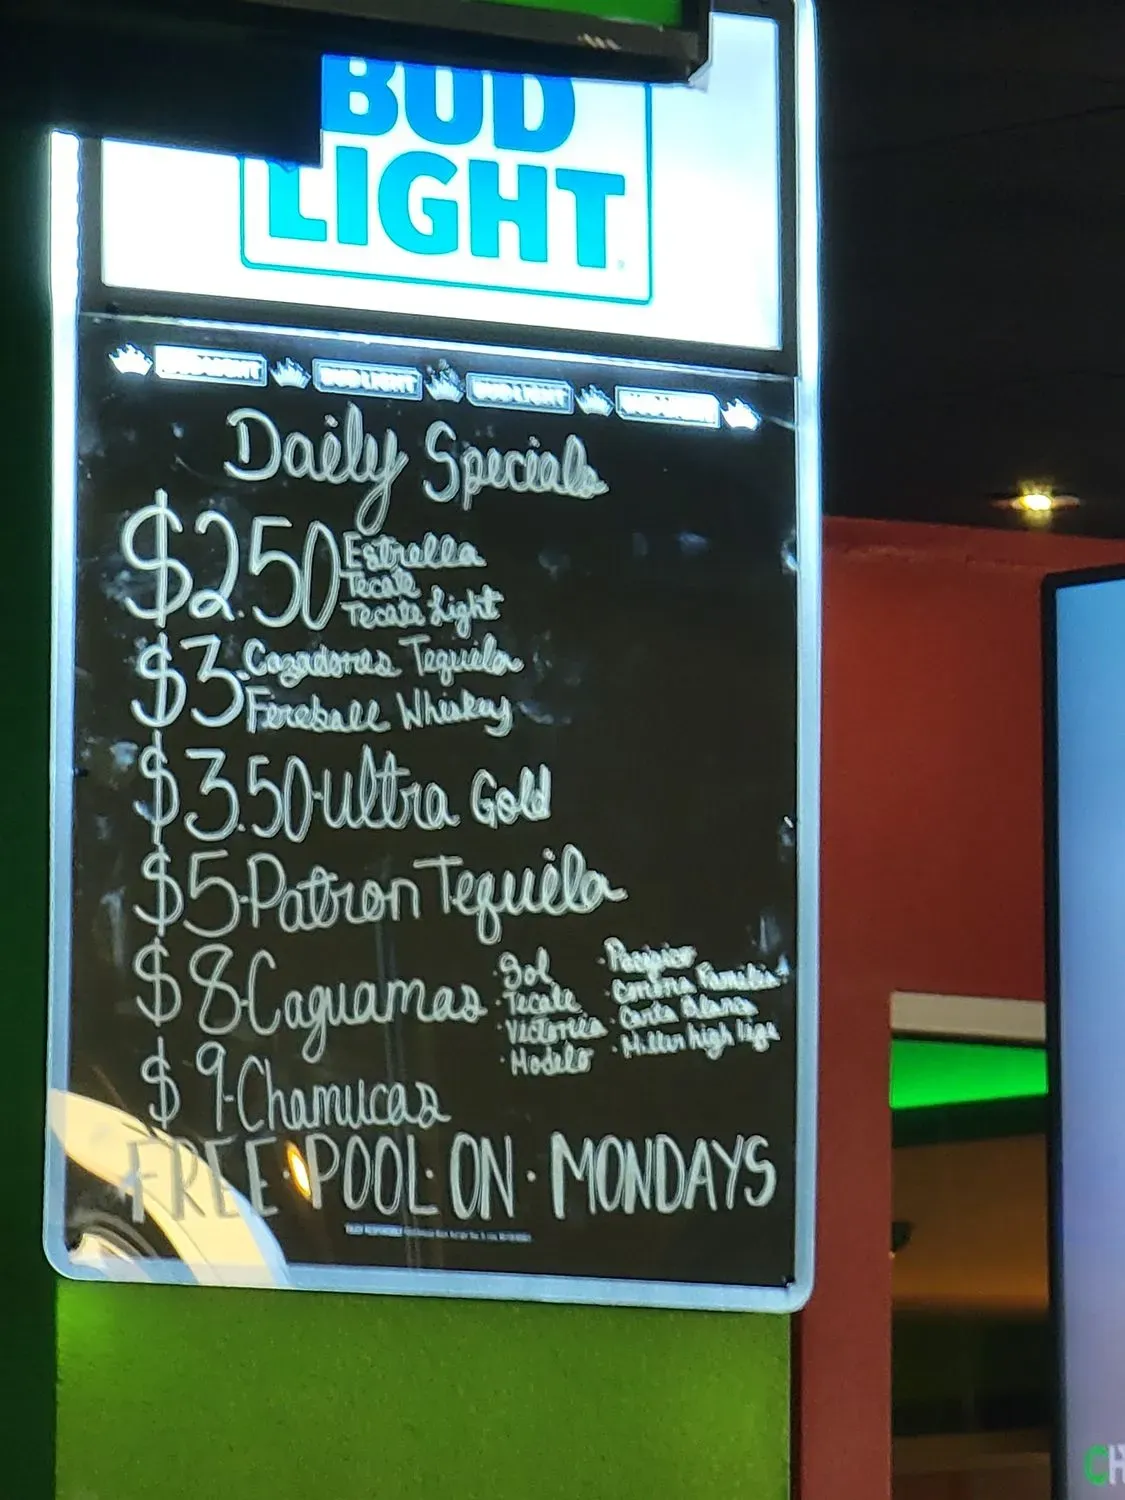 BUD
LIGHT
BUD LIGHT BUD LIGHT BUD LIGHT BUD LIGHT
Daily Specials
$2.50 Estrella
Tecate
Tecate Light
$3. Cazadores Tequila
Fireball Whiskey
$3.50-Ultra Gold
$5-Patron Tequila
$8-Caguamas
· Sol
· Tecate
· Victoria
· Modelo
· Pacifico
· Corona Familiar
· Carta Blanca
· Miller high life
$9-Chamucas
FREE · POOL · ON · MONDAYS
CH